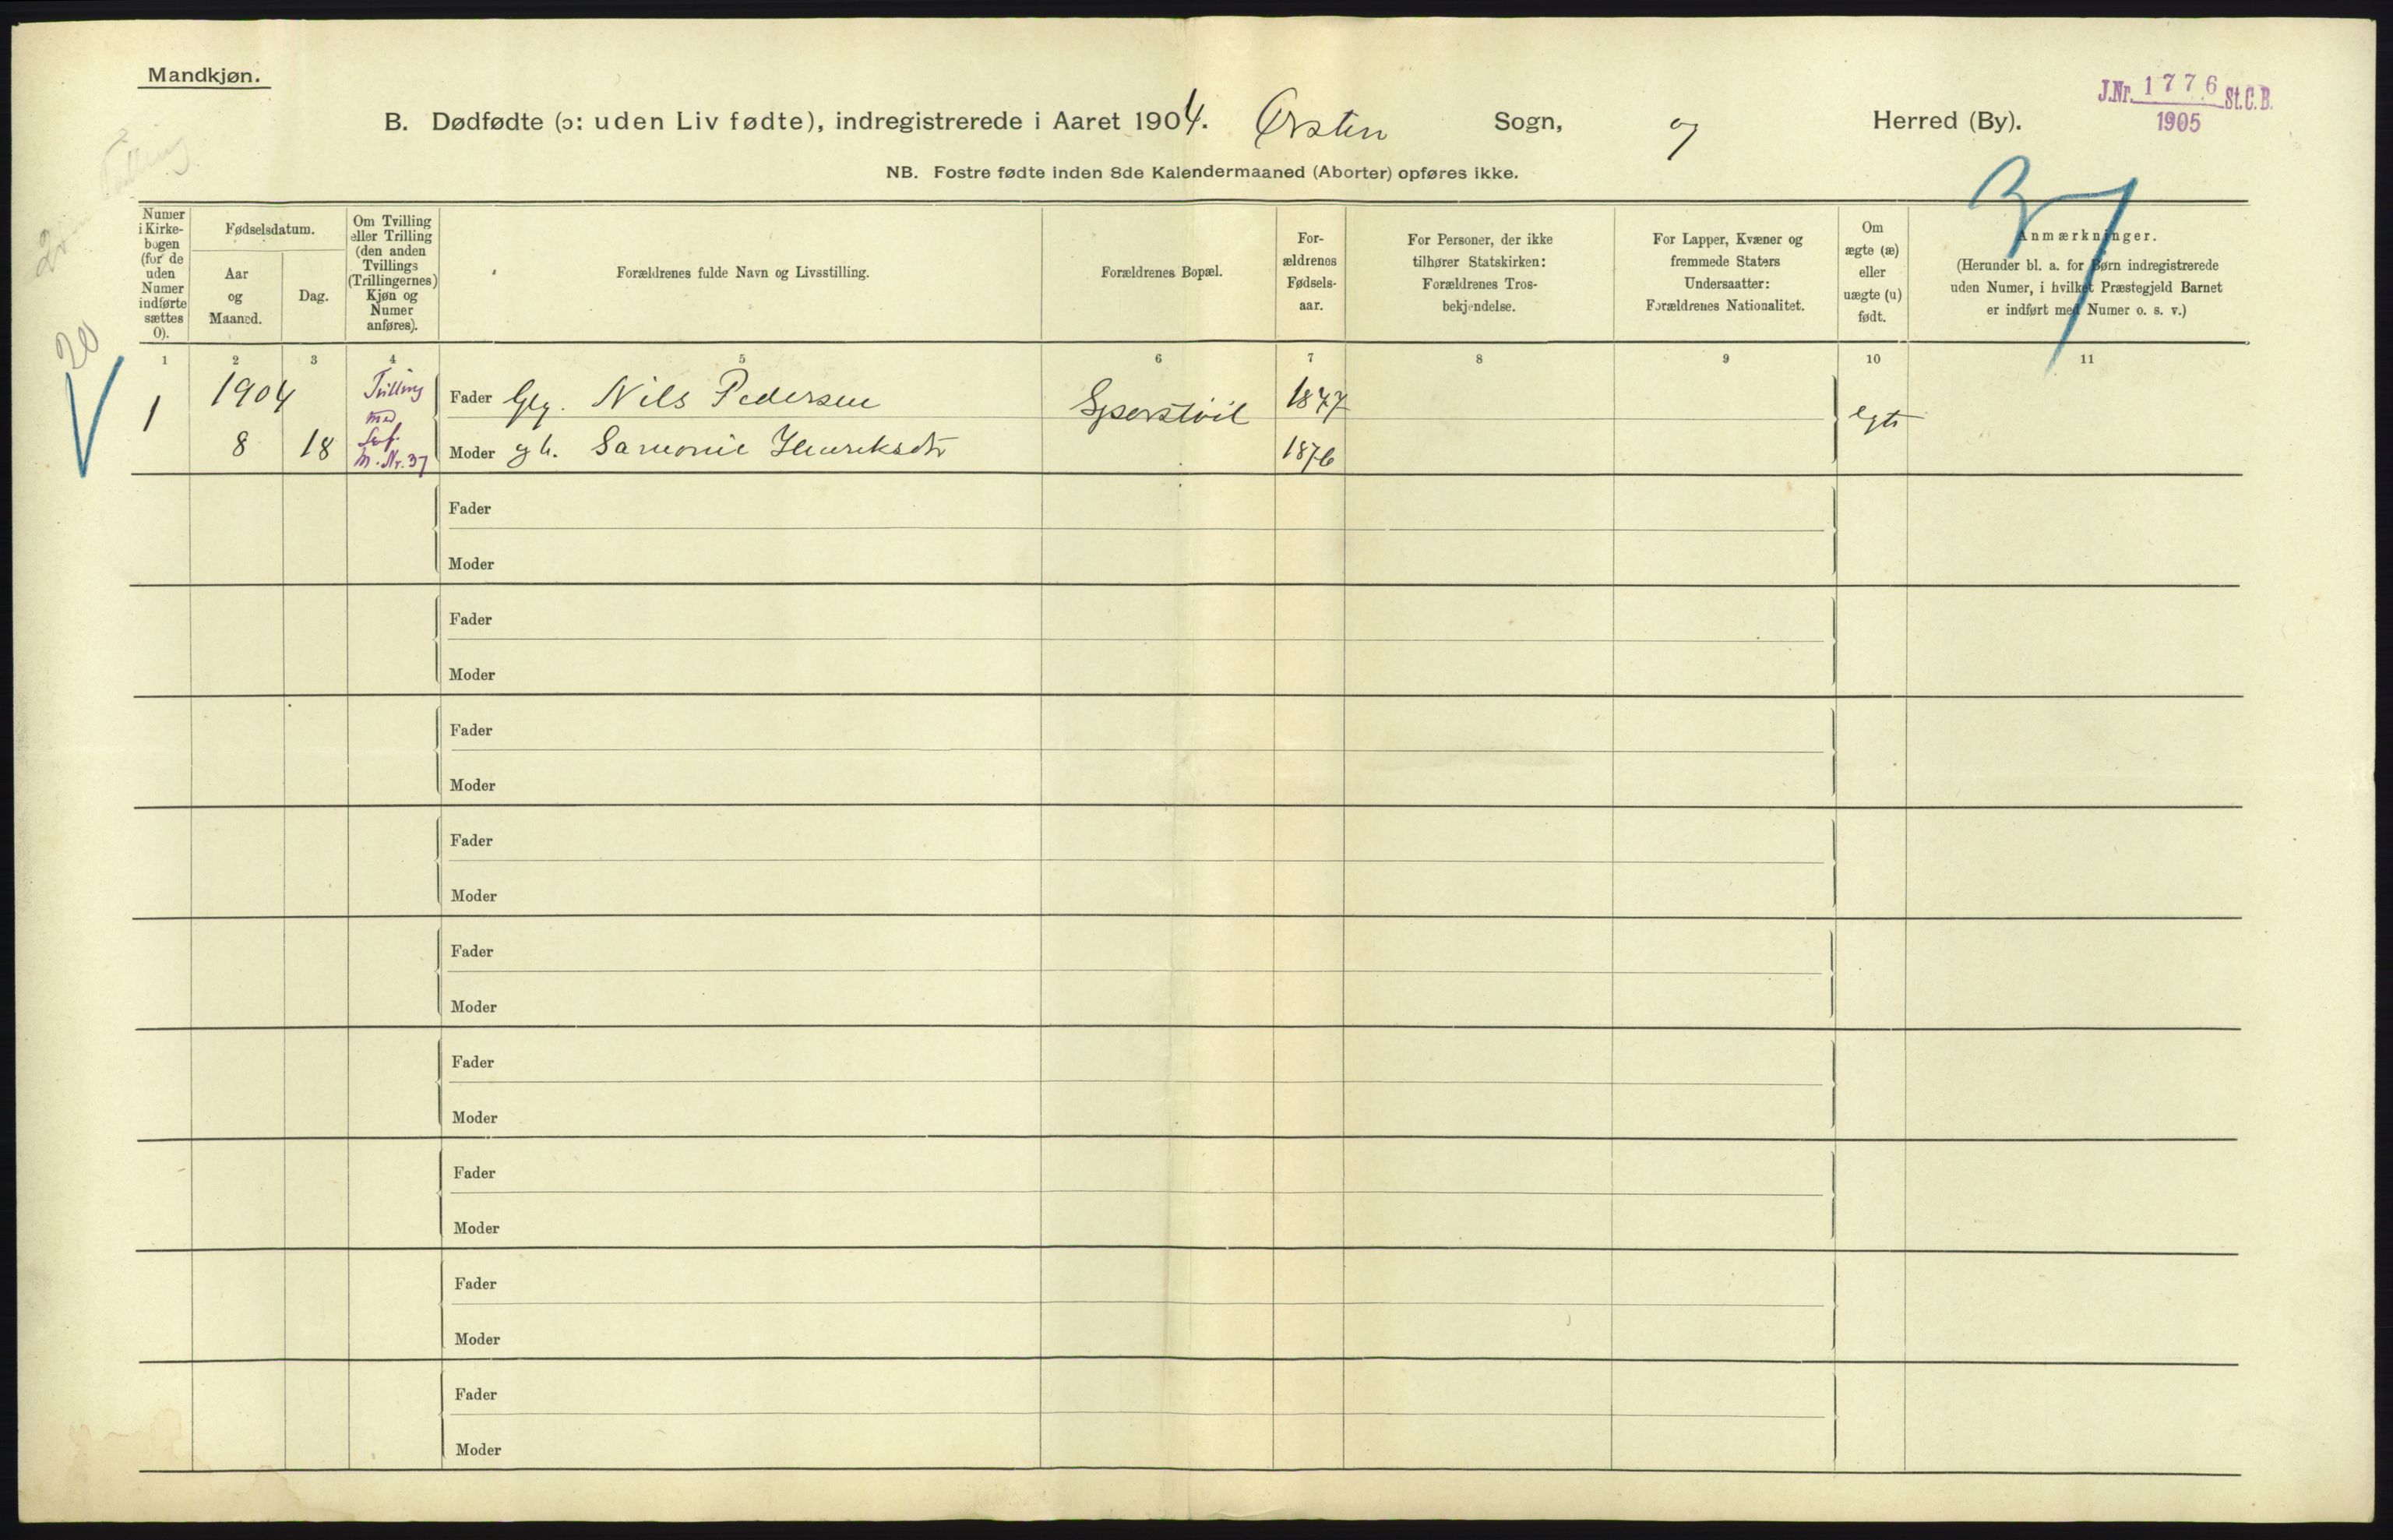 Mandkjøn.
B. Dødfødte (ɔ: uden Liv fødte), indregistrerede i Aaret 1904. Ørsten Sogn, og Herred (By).
J.Nr. 1776 St.C.B.
1905
NB. Fostre fødte inden 8de Kalendermaaned (Aborter) opføres ikke.
37
Tvilling
20
Numer i Kirkebogen (for de uden Numer indførte sættes 0).
Fødselsdatum.
Aar og Maaned.
Dag.
Om Tvilling eller Trilling (den anden Tvillings (Trillingernes) Kjøn og Numer anføres).
Forældrenes fulde Navn og Livsstilling.
Forældrenes Bopæl.
For-
ældrenes
Fødsels-
aar.
For Personer, der ikke
tilhører Statskirken:
Forældrenes Tros-
bekjendelse.
For Lapper, Kvæner og
fremmede Staters
Undersaatter:
Forældrenes Nationalitet.
Om
ægte (æ)
eller
uægte (u)
født.
Anmærkninger.
(Herunder bl. a. for Børn indregistrerede
uden Numer, i hvilket Præstegjeld Barnet
er indført med Numer o. s. v.)
1 2 3 4 5 6 7 8 9 10 11
1 1904 Tvilling Fader Gbg. Nils Pedersen 1847
med
8 18 Lev. Moder gh. 1876 egte
M. Nr. 37
Fader
Moder
Fader
Moder
Fader
Moder
Fader
Moder
Fader
Moder
Fader
Moder
Fader
Moder
Fader
Moder
Fader
Moder